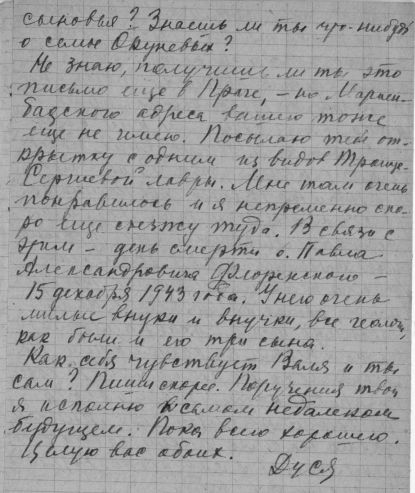 сыновья? Знаешь ли ты что-нибудь
о семье Окуневых?
Не знаю, получишь ли ты это
письмо еще в Праге, – но Мариен-
бадского адреса вашего тоже
еще не имею. Посылаю тебе от-
крытку с одним из видов Троице-
Сергиевой лавры. Мне там очень
понравилось и я непременно ско-
ро еще съезжу туда. В связи с
этим – день смерти о. Павла
Александровича Флоренского –
15 декабря 1943 года. У него очень
милые внуки и внучки, все геологи,
как были и его три сына.
Как себя чувствует Валя и ты
сам? Пиши скорее. Поручения твои
я исполню в самом недалеком
будущем. Пока всего хорошего.
Целую вас обоих.
Дуся